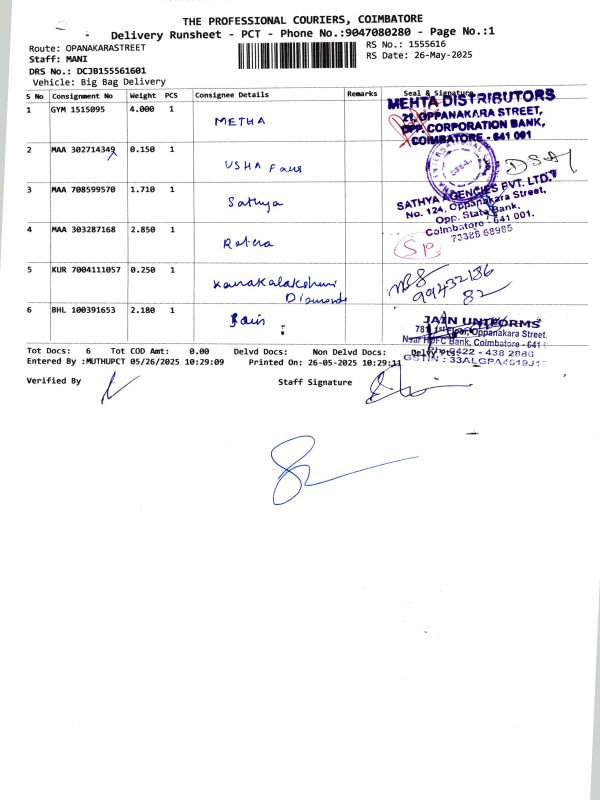 THE PROFESSIONAL COURIERS, COIMBATORE
Delivery Runsheet - PCT - Phone No.:9047080280 - Page No.:1
Route: OPANAKARASTREET
RS No.: 1555616
Staff: MANI
RS Date: 26-May-2025
DRS No.: DCJB155561601
Vehicle: Big Bag Delivery
S No Consignment No Weight PCS Consignee Details Remarks Seal & Signature
1 GYM 1515095 4.000 1 METHA
MEHTA DISTRIBUTORS
21, OPPANAKARA STREET,
OPP. CORPORATION BANK,
COIMBATORE - 641 001
2 MAA 302714349 0.150 1 USHA Fans
3 MAA 708599570 1.710 1 Sathya
SATHYA AGENCIES PVT. LTD.
No. 124, Oppanakara Street,
Opp. State Bank,
Coimbatore - 641 001.
73388 68985
4 MAA 303287168 2.850 1
5 KUR 7004111057 0.250 1 Kanakalakshmi
Diamonds
99432186
82
6 BHL 100391653 2.180 1 Jain
JAIN UNIFORMS
1st Floor, Oppanakara Street,
HDFC Bank, Coimbatore - 641
0422 - 438 2886
GSTIN :
Tot Docs: 6 Tot COD Amt: 0.00 Delvd Docs: Non Delvd Docs:
Entered By :MUTHUPCT 05/26/2025 10:29:09 Printed On: 26-05-2025 10:29:11
Verified By Staff Signature